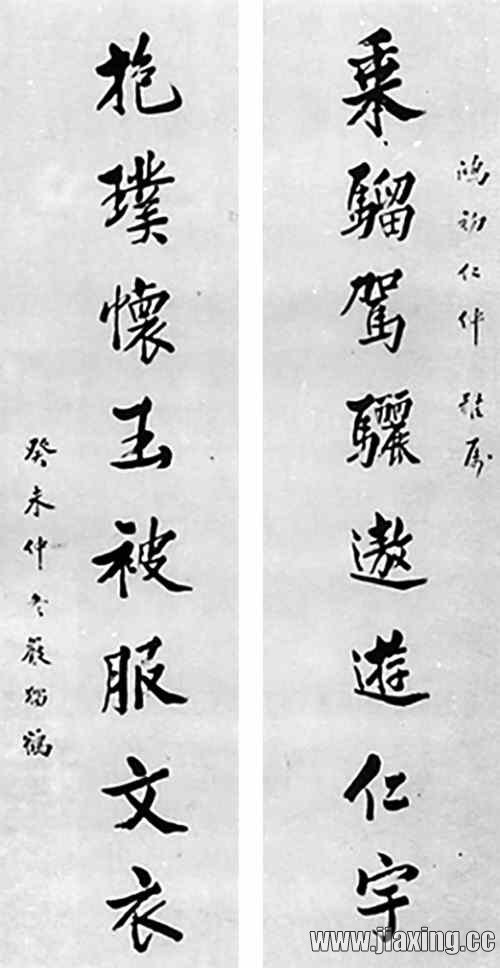 鴻初仁仲雅屬
乘騮駕驪遨遊仁宇
抱璞懷玉被服文衣
癸未仲冬嚴獨鶴
www.jiaxing.cc